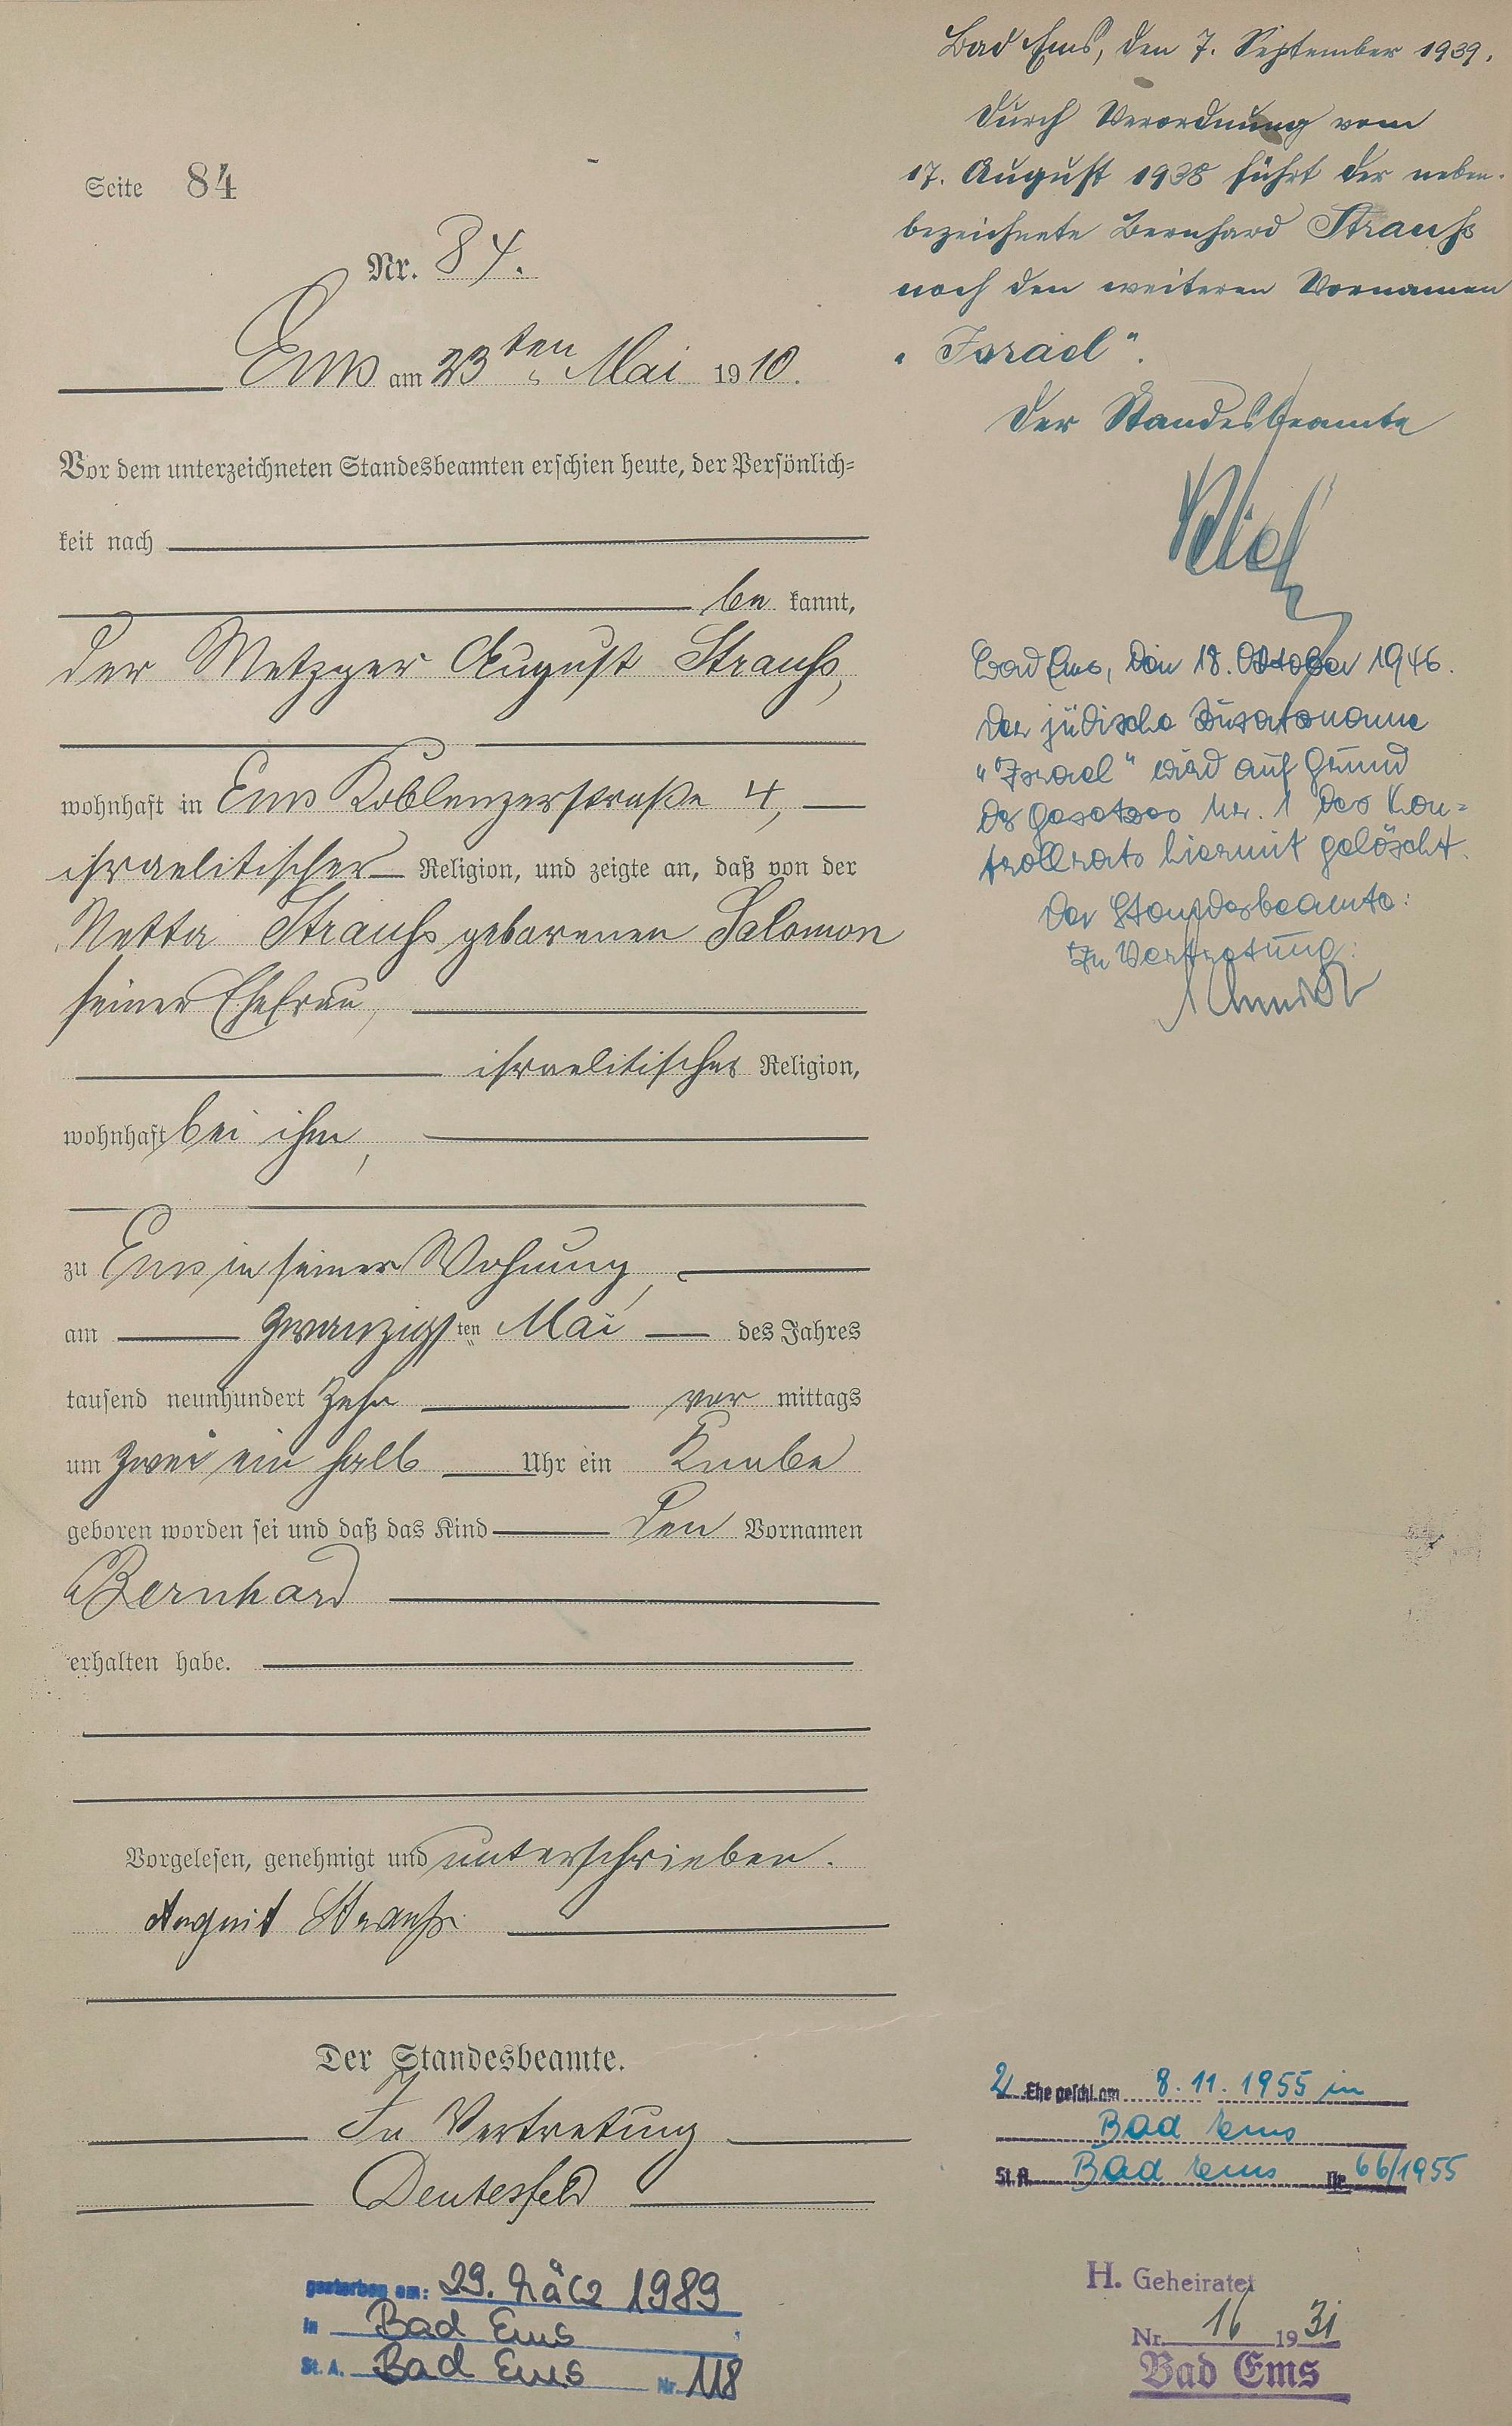 Seite 84
Nr. 84.
Ems am 23ten Mai 1910.
Vor dem unterzeichneten Standesbeamten erschien heute, der Persönlich=
keit nach
be kannt,
der Metzger August Strauß,
wohnhaft in Ems Koblenzerstraße 4,
israelitischer Religion, und zeigte an, daß von der
Netta Strauß geborenen Salomon
seiner Ehefrau,
israelitischer Religion,
wohnhaft bei ihm,
zu Ems in seiner Wohnung,
am zwanzigsten Mai des Jahres
tausend neunhundert zehn vor mittags
um zwei ein halb Uhr ein Knabe
geboren worden sei und daß das Kind den Vornamen
Bernhard
erhalten habe.
Vorgelesen, genehmigt und unterschrieben.
August Strauß
Der Standesbeamte.
In Vertretung
Deutesfeld
gestorben am: 29. März 1989
in Bad Ems
St. A. Bad Ems Nr. 118
Bad Ems, den 7. September 1939.
Durch Verordnung vom
17. August 1938 führt der neben-
bezeichnete Bernhard Strauß
noch den weiteren Vornamen
„Israel".
Der Standesbeamte
Bad Ems, den 18. Oktober 1946.
Der jüdische Zusatzname
"Israel" wird auf Grund
des Gesetzes Nr. 1 des Kon=
trollrats hiermit gelöscht.
Der Standesbeamte:
In Vertretung:
Schmidt
2 Ehe geschl. am 8.11.1955 in
Bad Ems
St. A. Bad Ems Nr. 66/1955
H. Geheiratet
Nr. 16 1931
Bad Ems